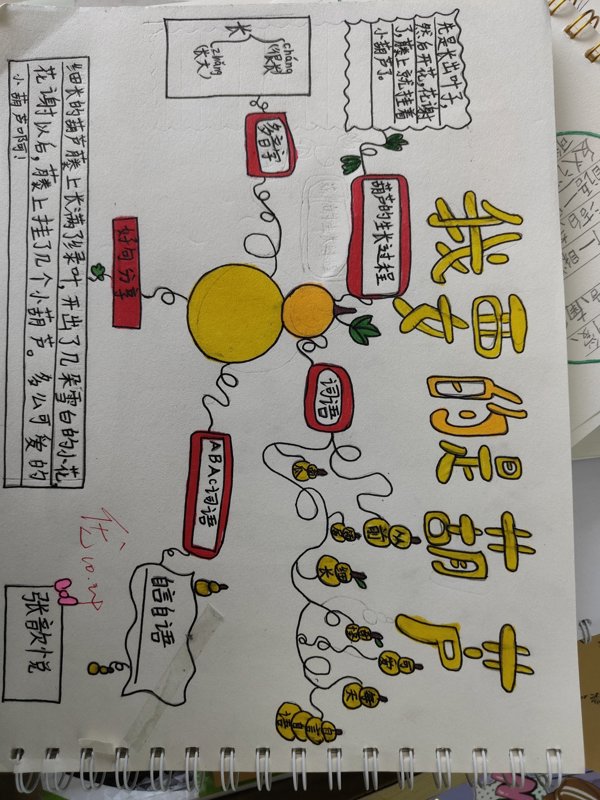 我要的是葫芦
先是长出叶子，
然后开花，花谢
了，藤上就挂着
小葫芦了。
葫芦的生长过程
多音字
长
cháng
(很长)
zhǎng
(长大)
词语
从前
细长
可爱
每天
自言自语
好句分享
细长的葫芦藤上长满了绿叶，开出了几朵雪白的小花。
花谢以后，藤上挂了几个小葫芦。多么可爱的
小葫芦啊！
ABAC词语
自言自语
优
10.24
张歆悦